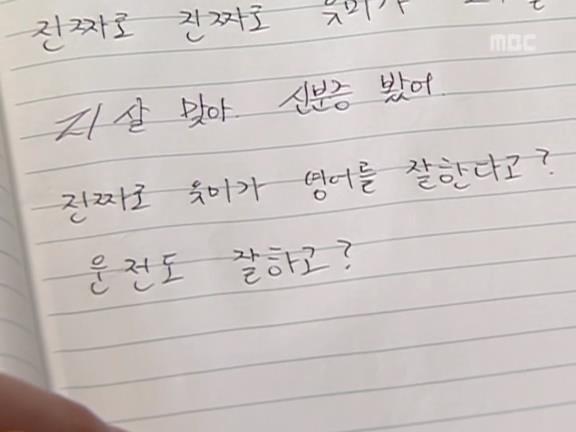 진짜로 진짜로 웃미가
MBC
21살 맞아. 신분증 봤어.
진짜로 웃미가 영어를 잘한다고?
운전도 잘하고?